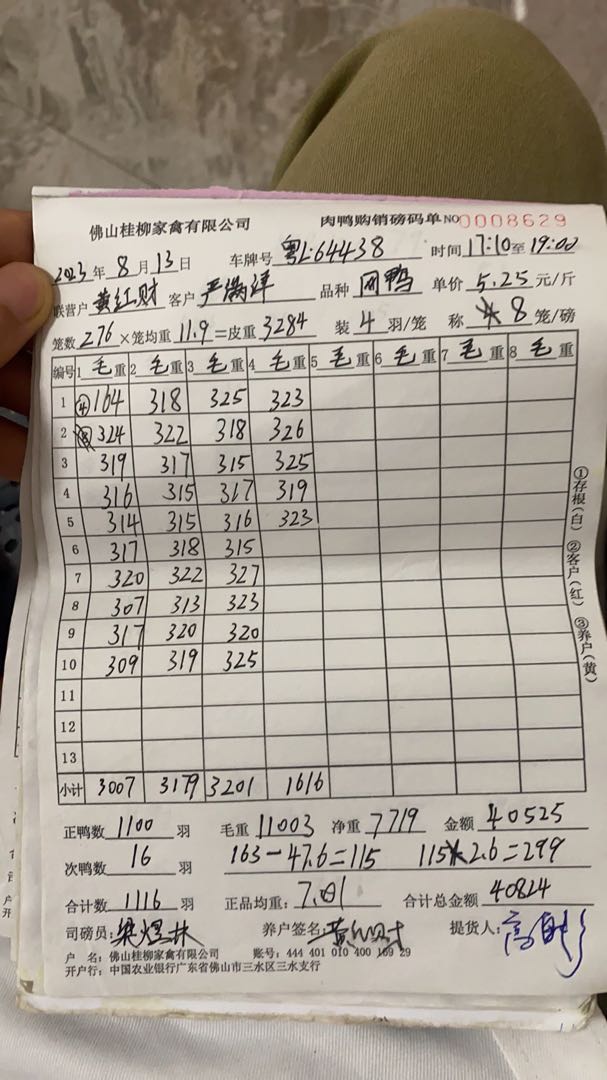 佛山桂柳家禽有限公司 肉鸭购销磅码单 NO 0008629
2023年8月13日 车牌号 粤L·64438 时间17:10至19:00
联营户 黄红财 客户 严满洋 品种 网鸭 单价 5.25 元/斤
笼数 276 ×笼均重 11.9 =皮重 3284 装 4 羽/笼 称 8 笼/磅
编号 1 毛重 2 毛重 3 毛重 4 毛重 5 毛重 6 毛重 7 毛重 8 毛重
1 ④164 318 325 323
2 324 322 318 326
3 319 317 315 325
4 316 315 317 319
5 314 315 316 323
6 317 318 315
7 320 322 327
8 307 313 323
9 317 320 320
10 309 319 325
11
12
13
小计 3007 3179 3201 1616
①存根(白) ②客户(红) ③养户(黄)
正鸭数 1100 羽 毛重 11003 净重 7719 金额 40525
次鸭数 16 羽 163-47.6=115 115×2.6=299
合计数 1116 羽 正品均重: 7.01 合计总金额 40824
司磅员: 梁煜林 养户签名: 黄红财 提货人:
户 名: 佛山桂柳家禽有限公司 账号: 444 401 010 400 169 29
开户行: 中国农业银行广东省佛山市三水区三水支行